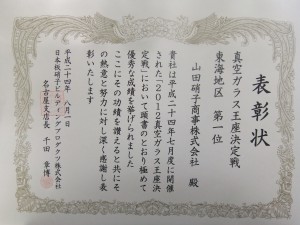 表彰状
真空ガラス王座決定戦
東海地区　第一位
山田硝子商事株式会社　殿
貴社は平成二十四年七月度に開催
された「2012真空ガラス王座決
定戦」において頭書のとおり極めて
優秀な成績を挙げられました
ここにその功績を讃えると共にそ
の熱意と努力に対し深く感謝し表
彰いたします
平成二十四年　八月一日
日本板硝子ビルディングプロダクツ株式会社
名古屋支店長　千田　章博